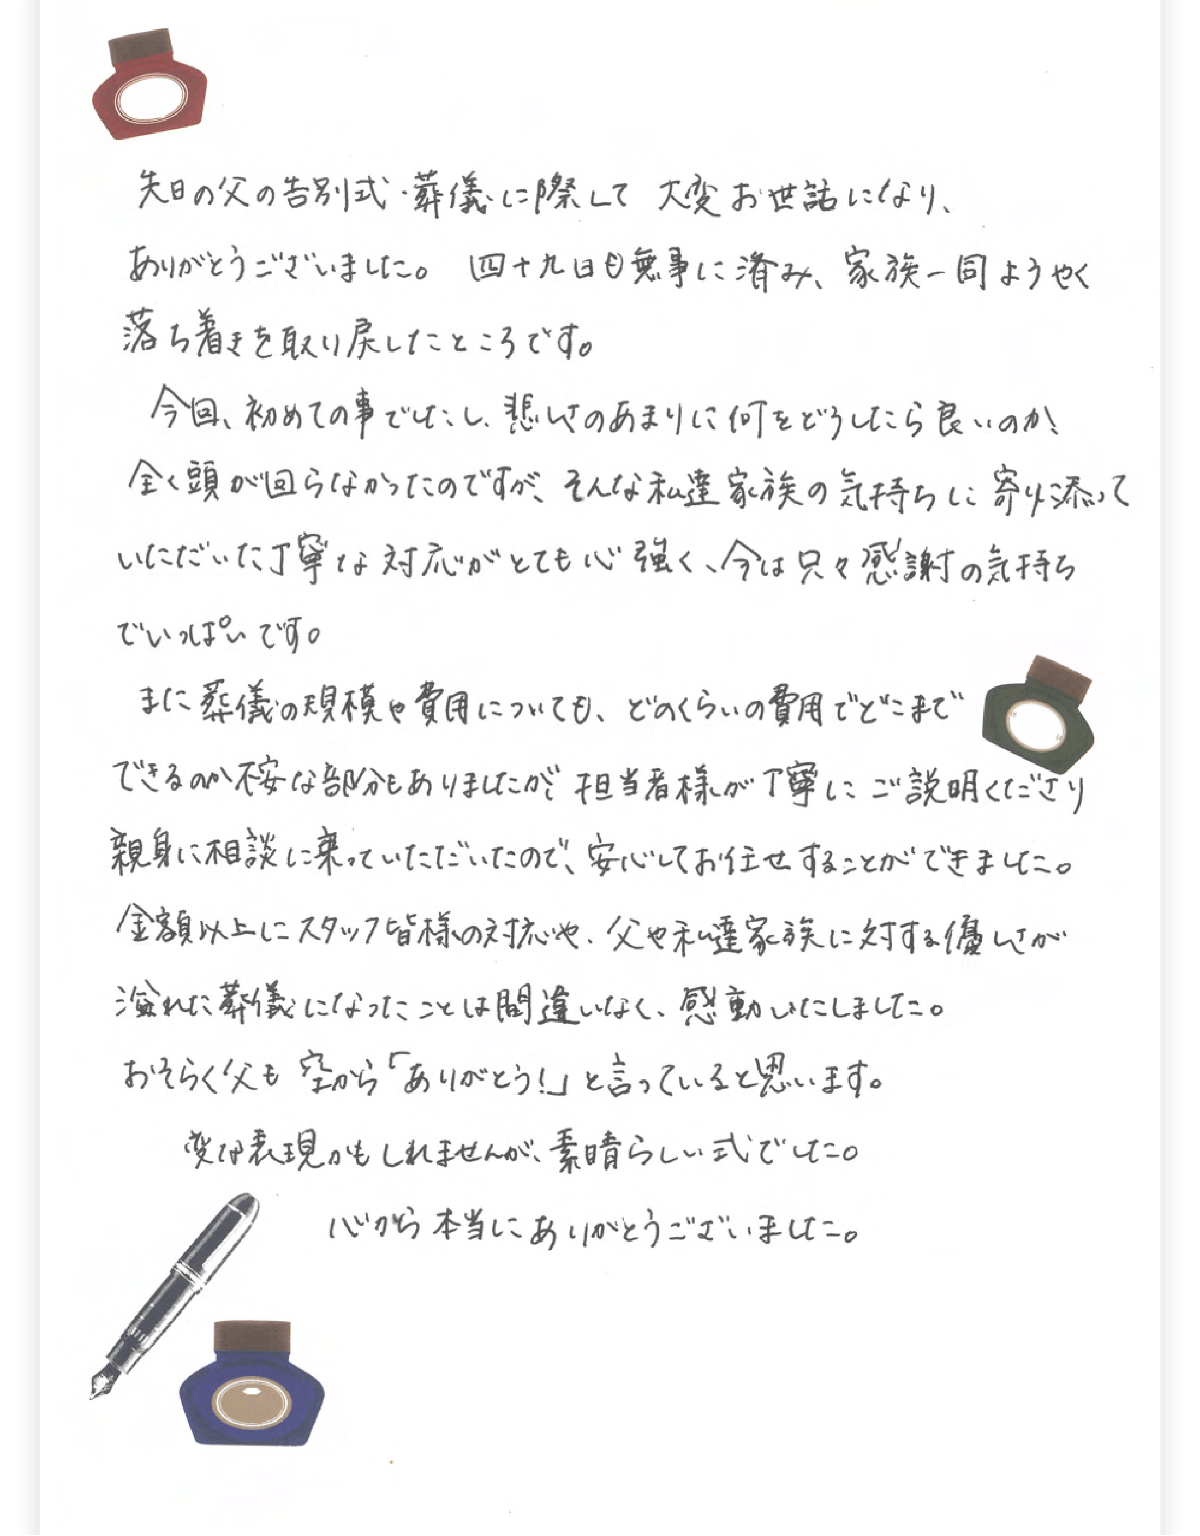 先日の父の告別式・葬儀に際して 大変お世話になり、
ありがとうございました。 四十九日も無事に済み、家族一同ようやく
落ち着きを取り戻したところです。
今回、初めての事でしたし、悲しさのあまりに何をどうしたら良いのか、
全く頭が回らなかったのですが、そんな私達家族の気持ちに寄り添って
いただいた丁寧な対応がとても心強く、今は只々感謝の気持ち
でいっぱいです。
また葬儀の規模や費用についても、どのくらいの費用でどこまで
できるのか不安な部分もありましたが、担当者様が丁寧にご説明くださり
親身に相談に乗っていただいたので、安心してお任せすることができました。
金額以上にスタッフ皆様の対応や、父や私達家族に対する優しさが
溢れた葬儀になったことは間違いなく、感動いたしました。
おそらく父も空から「ありがとう!」と言っていると思います。
変な表現かもしれませんが、素晴らしい式でした。
心から本当にありがとうございました。